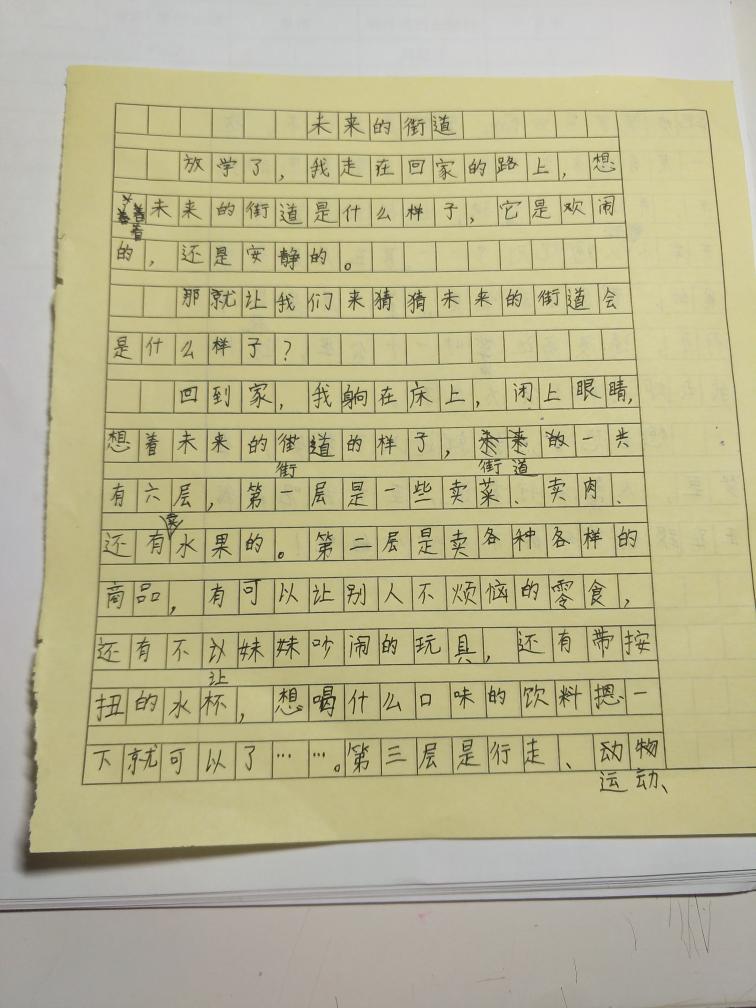 未来的街道
放学了，我走在回家的路上，想
着未来的街道是什么样子，它是欢闹
的，还是安静的。
那就让我们来猜猜未来的街道会
是什么样子？
回到家，我躺在床上，闭上眼睛，
想着未来的街道的样子，未来放一共
街 街道
有六层，第一层是一些卖菜、卖肉、
还有卖水果的。第二层是卖各种各样的
商品，有可以让别人不烦恼的零食，
还有不以妹妹吵闹的玩具，还有带按
让
扭的水杯，想喝什么口味的饮料摁一
下就可以了……。第三层是行走、动物
运动、